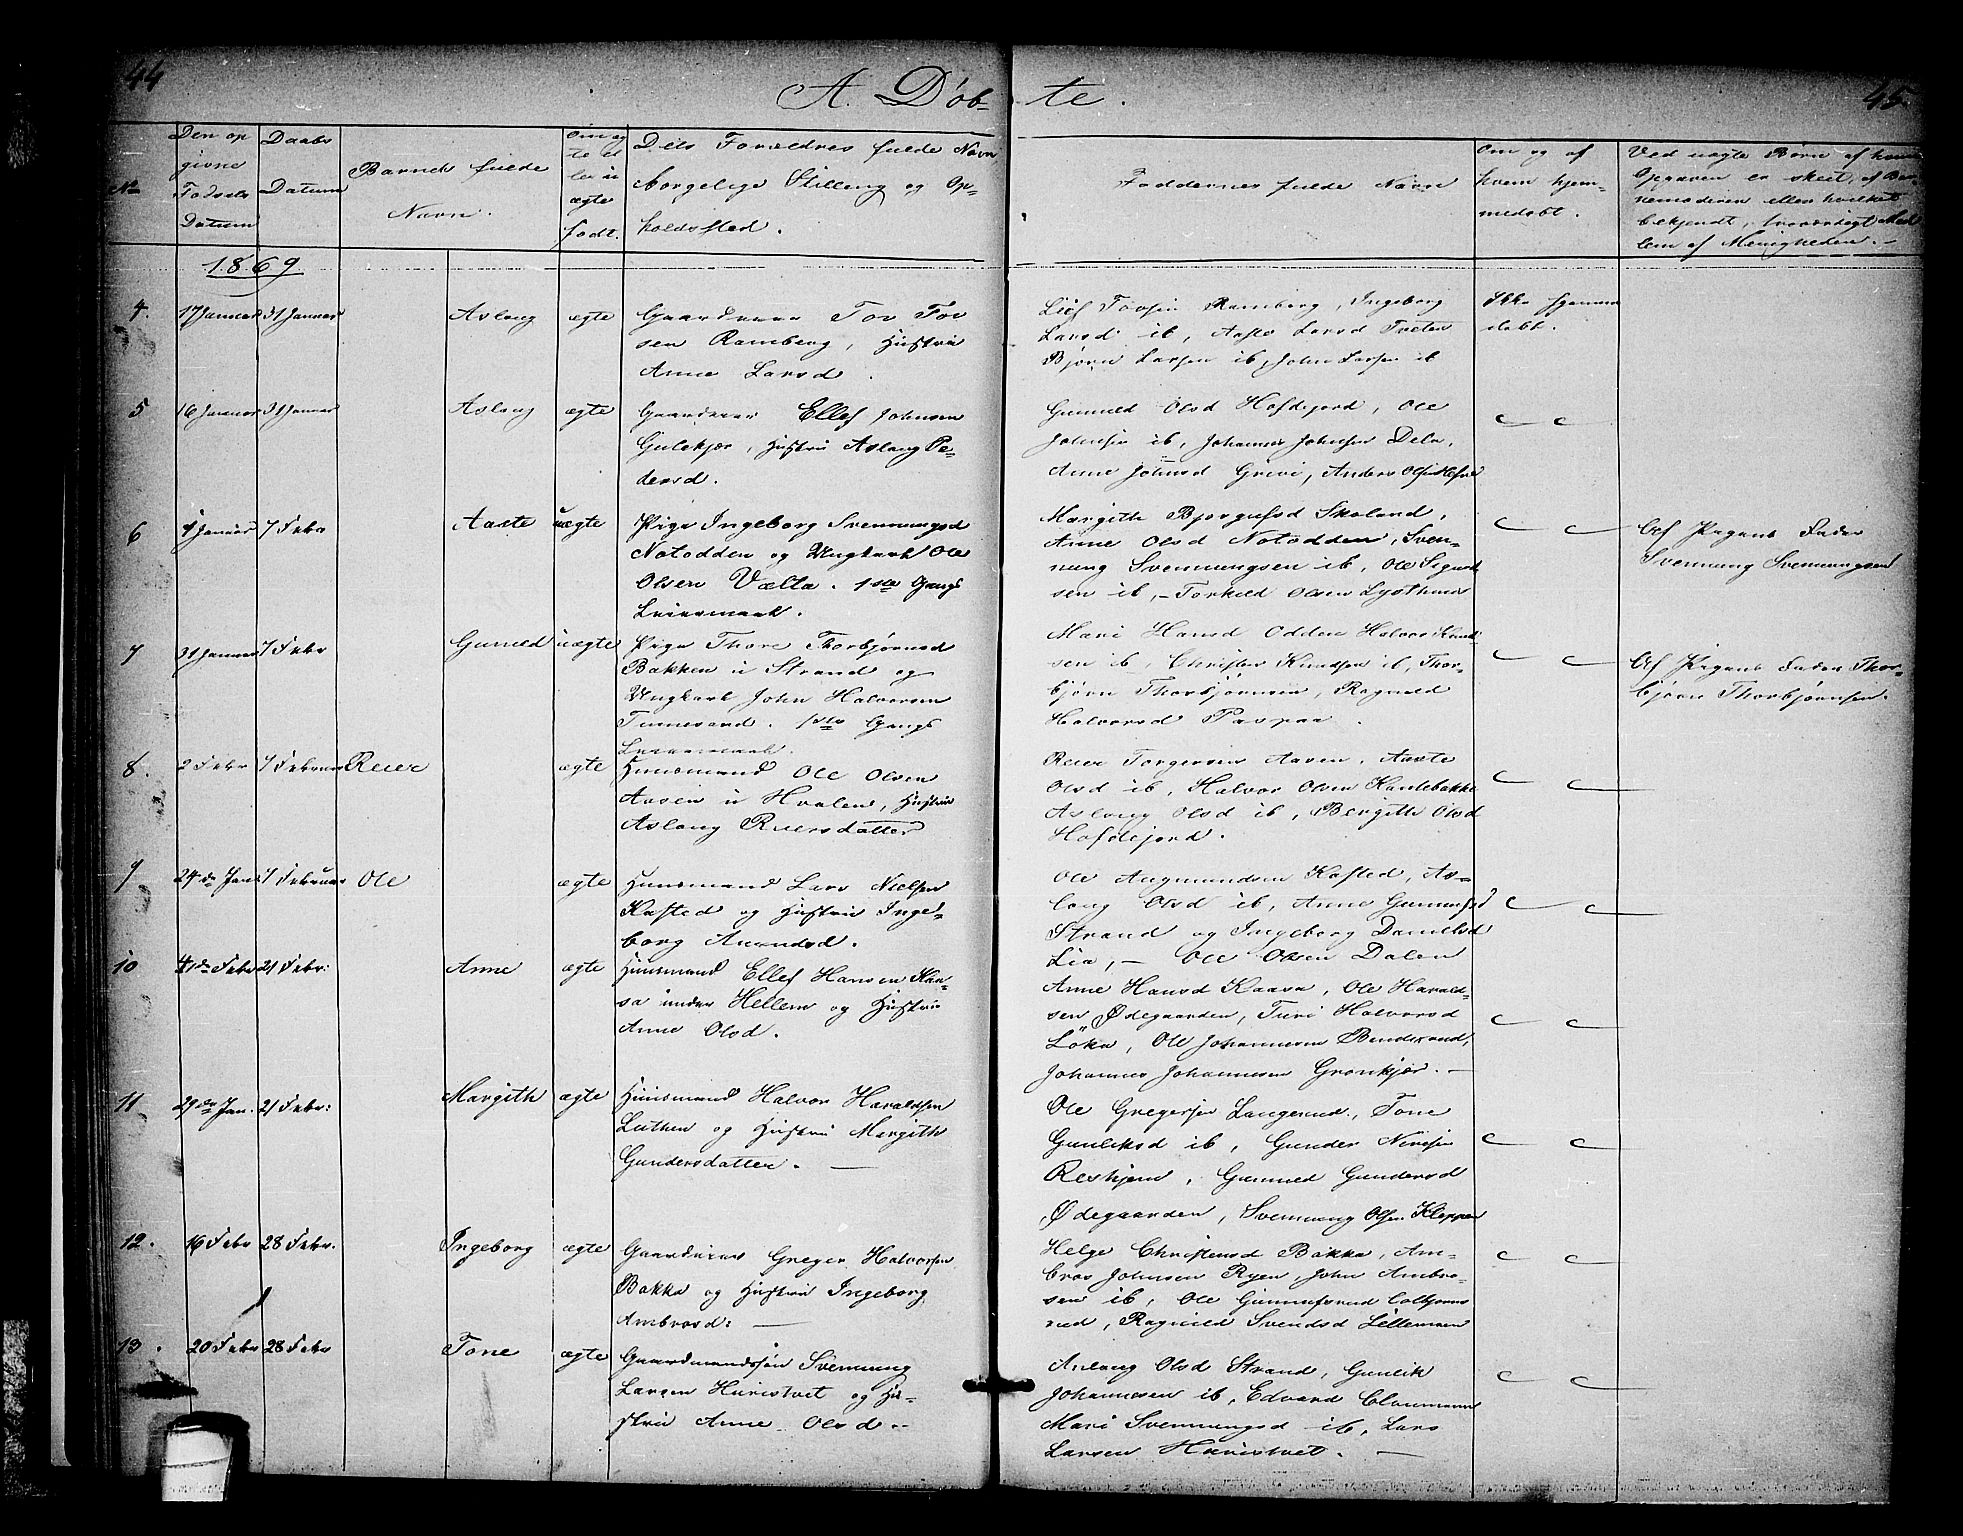 44
A. Døb-
te.
45.
No
Den op
givne
Fødsels
Datum
Daabs
Datum
Barnets fulde
Navn.
Om æg
te el
ler u
ægte
født.
Dets Forældres fulde Navn
borgelige Stilling og Op-
holdssted.
Faddernes fulde Navn
Om og af
hvem hjem-
medøbt.
Ved uægte Børn af hvem
Opgaven er skeet, af Bar-
nemoderen eller hvilket
bekjendt, troværdigt Med
lem af Menigheden. -
1869
4. 17 Januar 31 Januar Aslaug ægte Gaardbruger Tov Tov
sen Ramberg, Hustru
Anne Larsd.
Lief Tovsen Ramberg, Ingeborg
Larsd ib, Aaste Larsd Tveten
Bjørn Larsen ib, John Larsen ib
Ikke hjemme
døbt.
5 16 Januar 31 Januar Aslaug ægte Gaardbruger Ellef Johnsen
Gulekjær, Hustru Aslaug Pe-
dersd.
Gunild Olsd Hofdejord, Ole
Johnsen ib, Johannes Johnsen Dela,
Anne Johnsd Grivi, Anders Olsen
6 4 Januar 7 Febr Aaste uægte Pige Ingeborg Svennungsd
Notodden og Ungkarl Ole
Olsen Vælta. 1ste Gangs
Leiermaal.
Margith Bjørgufsd Skoland,
Anne Olsd Notodden, Sven-
nung Svennungsen ib, Ole Sigurd
sen ib, - Torkild Olsen Lysthus
Af Pigens Fader
Svennung Svennungsen
7 31 Januar 7 Febr Gunild uægte Pige Thore Thorbjørnsd
Bakken u Strand og
Ungkarl John Halvorsen
Tinnesand. 1ste Gangs
Leiermaal.
Mari Hansd Odden Halvor Knud
sen ib, Christen Knudsen ib, Thor-
bjørn Thorbjørnsen, Ragnild
Halvorsd
Af Pigens Fader Thor-
bjørn Thorbjørnsen.
8. 2 Febr 7 Februar Reier ægte Huusmand Ole Olsen
Aasen u Hvalen, Hustru
Aslaug Reiersdatter
Reier Torgersen Aasen, Aaste
Olsd ib, Halvor Olsen Kastebakke
Aslaug Olsd ib, Bergitte Olsd
Hofdejord.
9 24de Jan 7 Februar Ole ægte Huusmand Lars Nielsen
Kasted og Hustru Inge-
borg Amundsd.
Ole Augmundsen Kasted, As-
laug Olsd ib, Anne
Strand og Ingeborg Danielsd
Lia, - Ole Olsen Dalen
10 4de Febr 21 Febr: Anne ægte Huusmand Ellef Hansen Kaa-
sa under Hellem og Hustru
Anne Olsd.
Anne Hansd Kaasa, Ole Harald-
sen Ødegaarden, Turi Halvorsd
Løka, Ole Johannesen Bindesand,
Johannes Johannesen Grønkjær. -
11 29de Jan. 21 Febr: Margith ægte Huusmand Halvor Haraldsen
Luthen og Hustru Margith
Gundersdatter. -
Ole Gregersen Langerud, Tone
Guniksd ib, Gunder
Reskjem, Gunild Gundersd
Ødegaarden, Svennung Olsen Kleppen
12. 16 Febr 28 Febr. Ingeborg ægte Gaardbruger Greger Halvorsen
Bakka og Hustru Ingeborg
Ambrosd: -
Helge Christensd Bakka, Am-
bros Johnsen Ryen, John Ambro-
sen ib, Ole
rud, Ragnild Svendsd Lillemoen
13. 20 Febr 28 Febr Tone ægte Gaardmandssøn Svennung
Larsen Haristvet og Hu-
stru Anne Olsd. -
Aslaug Olsd Strand, Gunlik
Johannesen ib, Edvard Clausmann
Mari Svennungsd ib, Lars
Larsen Haristvet. -